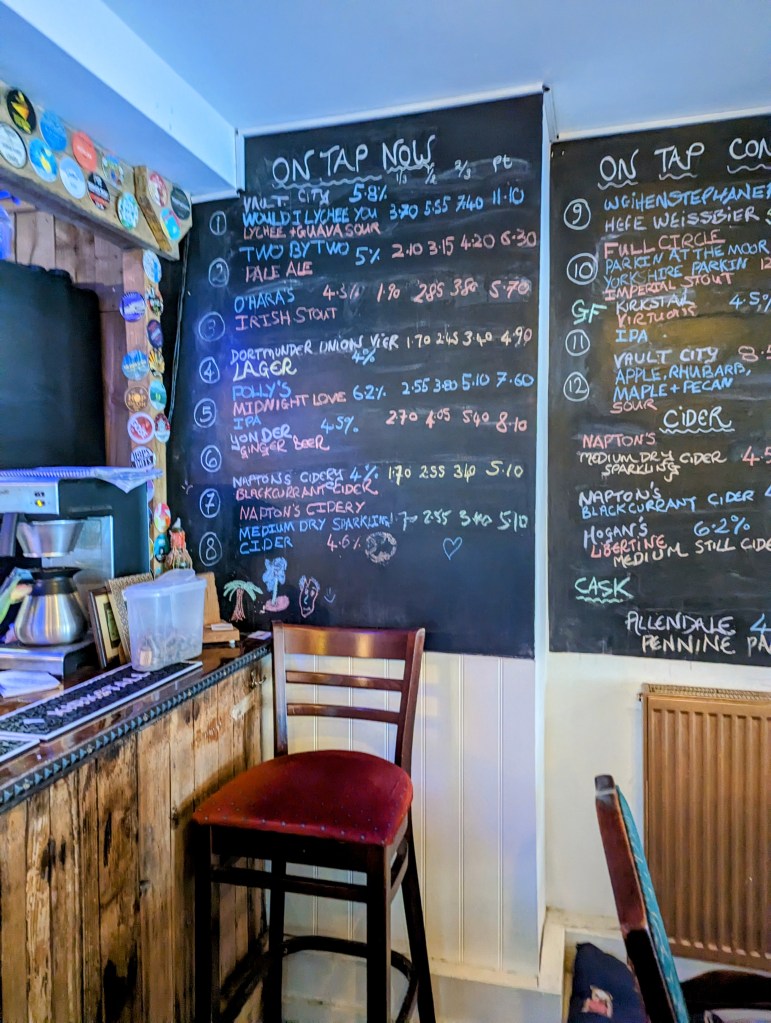 ON TAP NOW
1/3 1/2 2/3 pt
1 VAULT CITY 5.8%
WOULD I LYCHEE YOU 3.70 5.55 7.40 11.10
LYCHEE + GUAVA SOUR
2 TWO BY TWO 5% 2.10 3.15 4.20 6.30
PALE ALE
3 O'HARA'S 4.3% 1.90 2.85 3.80 5.70
IRISH STOUT
4 DORTMUNDER UNION VIER 1.70 2.45 3.40 4.90
LAGER 4%
5 POLLY'S 6.2% 2.55 3.80 5.10 7.60
MIDNIGHT LOVE
IPA
6 YONDER 4.5% 2.70 4.05 5.40 8.10
GINGER BEER
7 NAPTON'S CIDERY 4% 1.70 2.55 3.40 5.10
BLACKCURRANT CIDER
8 NAPTON'S CIDERY
MEDIUM DRY SPARKLING 1.70 2.55 3.40 5.10
CIDER 4.6%
ON TAP CON
9 WEIHENSTEPHANER
HEFE WEISSBIER
10 FULL CIRCLE
PARKIN AT THE MOOR
YORKSHIRE PARKIN 12
IMPERIAL STOUT
GF 11 KIRKSTALL 4.5%
VIRTUOUS
IPA
12 VAULT CITY 8.5
APPLE, RHUBARB,
MAPLE + PECAN
SOUR
CIDER
NAPTON'S
MEDIUM DRY CIDER 4.5
SPARKLING
NAPTON'S
BLACKCURRANT CIDER 4
HOGAN'S 6.2%
LIBERTINE
MEDIUM STILL CIDE
CASK
ALLENDALE 4
PENNINE PA